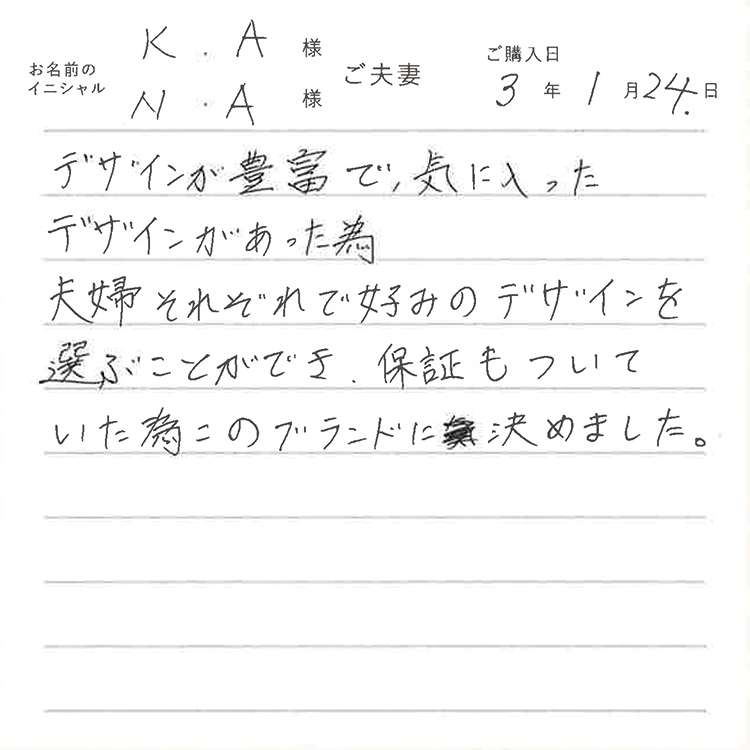 お名前の
イニシャル
K . A 様
N . A 様
ご夫妻
ご購入日
3 年 1 月 24. 日
デザインが豊富で、気に入った
デザインがあった為
夫婦それぞれで好みのデザインを
選ぶことができ、保証もついて
いた為このブランドに決めました。